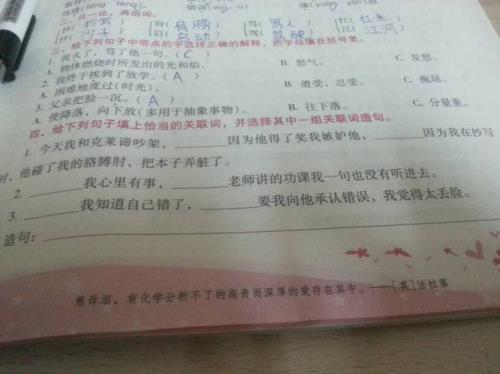 二、比一比，再组词。
三、给下列句子中带点的字选择正确的解释，把字母填在括号里。
1. 我火了，骂了他一句。（C）
A. 物体燃烧时所发出的光和焰。 B. 怒气。 C. 发怒。
2. 我终于挨到了放学。（A）
A. 困难地度过（时光）。 B. 遭受，忍受。 C. 拖延。
3. 父亲把脸一沉。（A）
A. 使降落，向下放（多用于抽象事物）。 B. 往下落。 C. 分量重。
四、给下列句子填上恰当的关联词，并选择其中一组关联词造句。
1. 今天我和克莱谛吵架，________因为他得了奖我嫉妒他，________因为我在抄写
时，他碰了我的胳膊肘，把本子弄脏了。
2. ________我心里有事，________老师讲的功课我一句也没有听进去。
3. ________我知道自己错了，________要我向他承认错误，我觉得太丢脸。
造句：
慈母泪，有化学分析不了的高贵而深厚的爱存在其中。——[英]法拉第